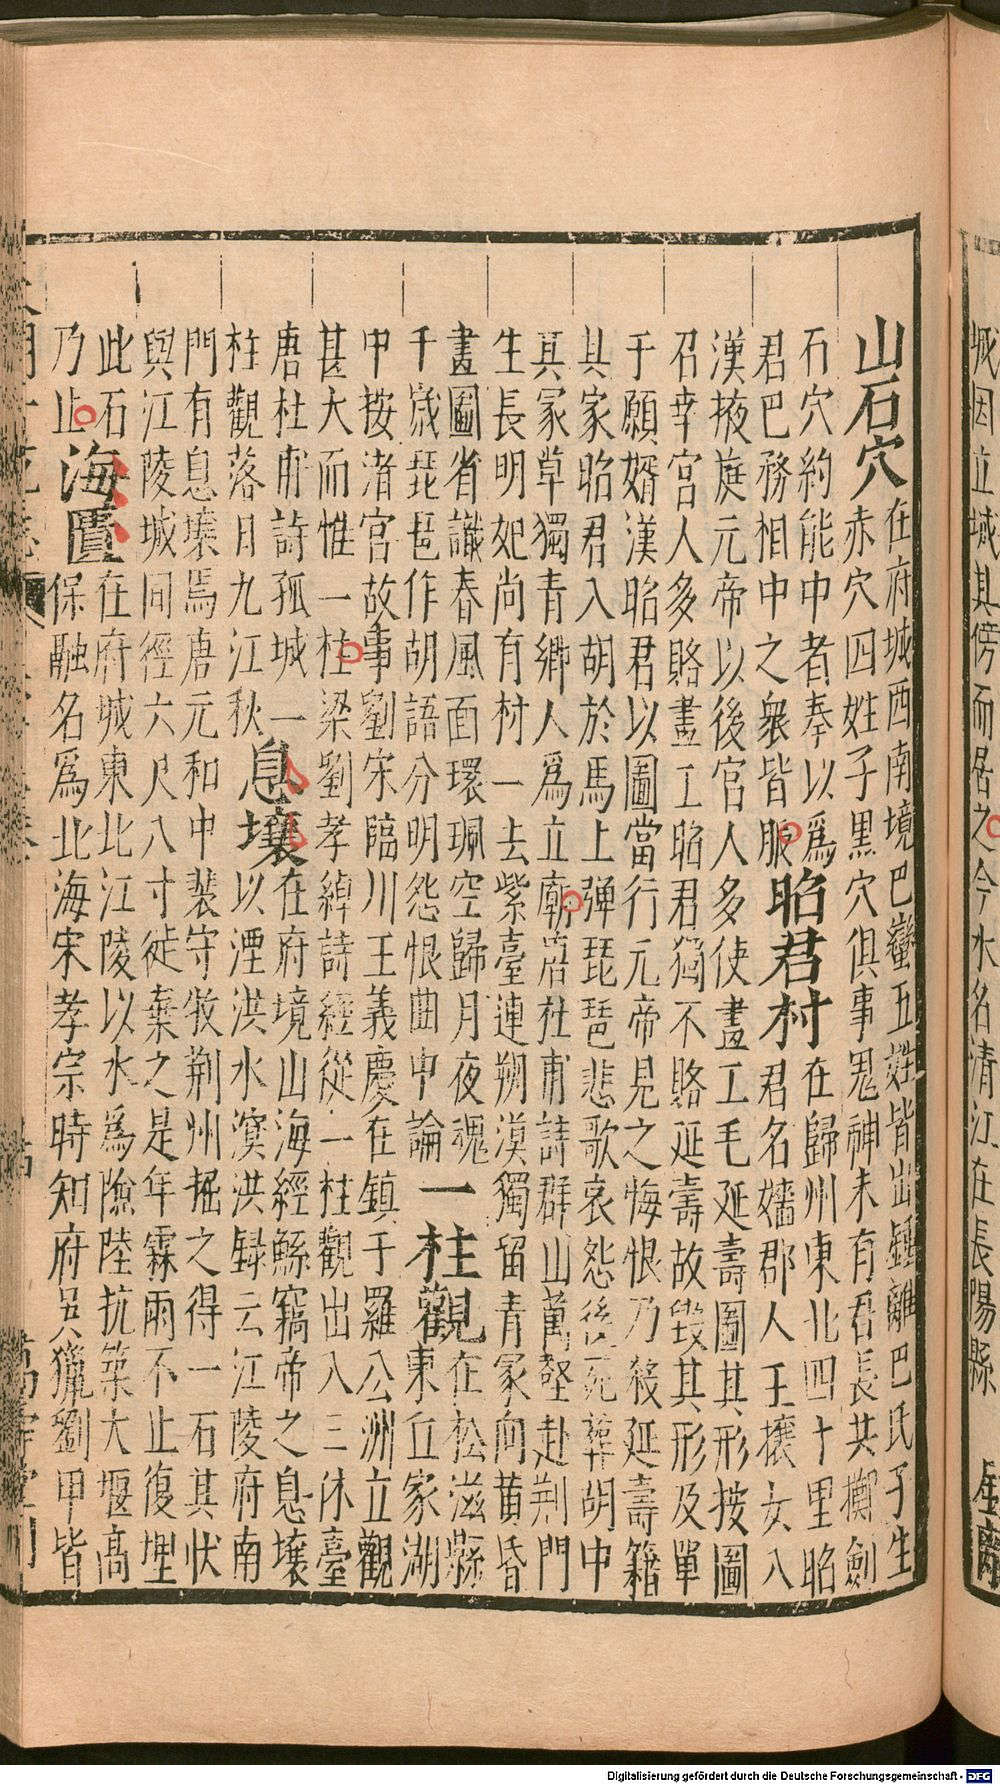 城因立城其傍而居之今水名清江在長陽縣
山石穴
在府城西南境巴蠻五姓皆出鍾離巴氏子生
赤穴四姓子黑穴俱事鬼神未有君長共擲劍
石穴約能中者奉以爲
君巴務相中之衆皆服
昭君村
在歸州東北四十里昭
君名嬙郡人王攘女入
漢掖庭元帝以後宮人多使畫工毛延壽圖其形按圖
召幸宮人多賂畫工昭君獨不賂延壽故毀其形及單
于願婿漢昭君以圖當行元帝見之悔恨乃殺延壽籍
其家昭君入胡於馬上弹琵琶悲歌哀怨後死葬胡中
其冢草獨青鄉人爲立廟唐杜甫詩群山萬壑赴荆門
生長明妃尚有村一去紫臺連朔漠獨留青冢向黄昏
畫圖省識春風面環珮空歸月夜魂
千歲琵琶作胡語分明怨恨曲中論
一柱觀
在松滋縣
東丘家湖
中按渚宮故事劉宋臨川王義慶在鎮于羅公洲立觀
甚大而惟一柱梁劉孝綽詩經從一柱觀出入三休臺
唐杜甫詩孤城一
柱觀落月九江秋
息壤
在府境山海經鯀竊帝之息壤
以湮洪水溟洪録云江陵府南
門有息壤焉唐元和中裴守牧荆州掘之得一石其狀
與江陵城同徑六尺八寸徙棄之是年霖雨不止復埋
此石
乃止
海匱
在府城東北江陵以水爲險陸抗築大堰高
保融名爲北海宋孝宗時知府吳獵劉甲皆
Digitalisierung gefördert durch die Deutsche Forschungsgemeinschaft - DFG